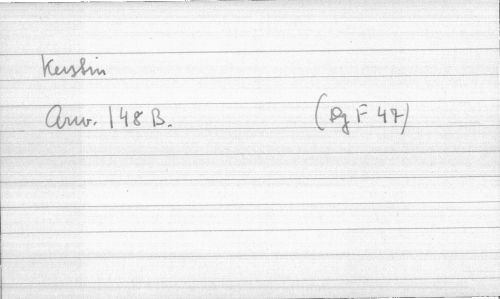 Kerstin
Arw. 148 B. (Dg F 47)